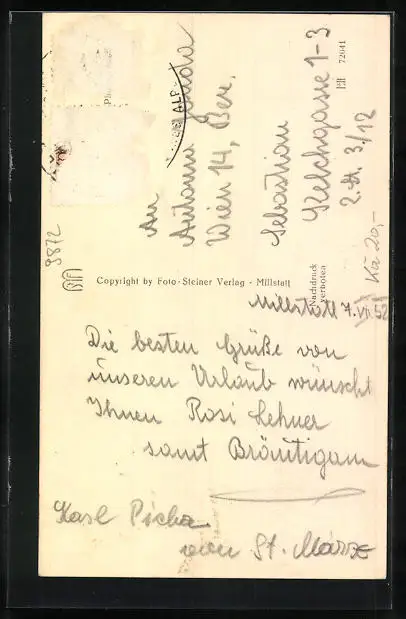 Millstatt 7. VII. 52
Die besten Grüße von
unseren Urlaub wünscht
Ihnen Rosi Lehner
samt Bräutigam
Karl Picha
von St. Marx
An
Antonia
Wien 14, Bez.
Sebastian
Kelchgasse 1-3
2. St. 3./12
Copyright by Foto-Steiner Verlag - Millstatt
Nachdruck
verboten
72641
9872
Kä 20,-